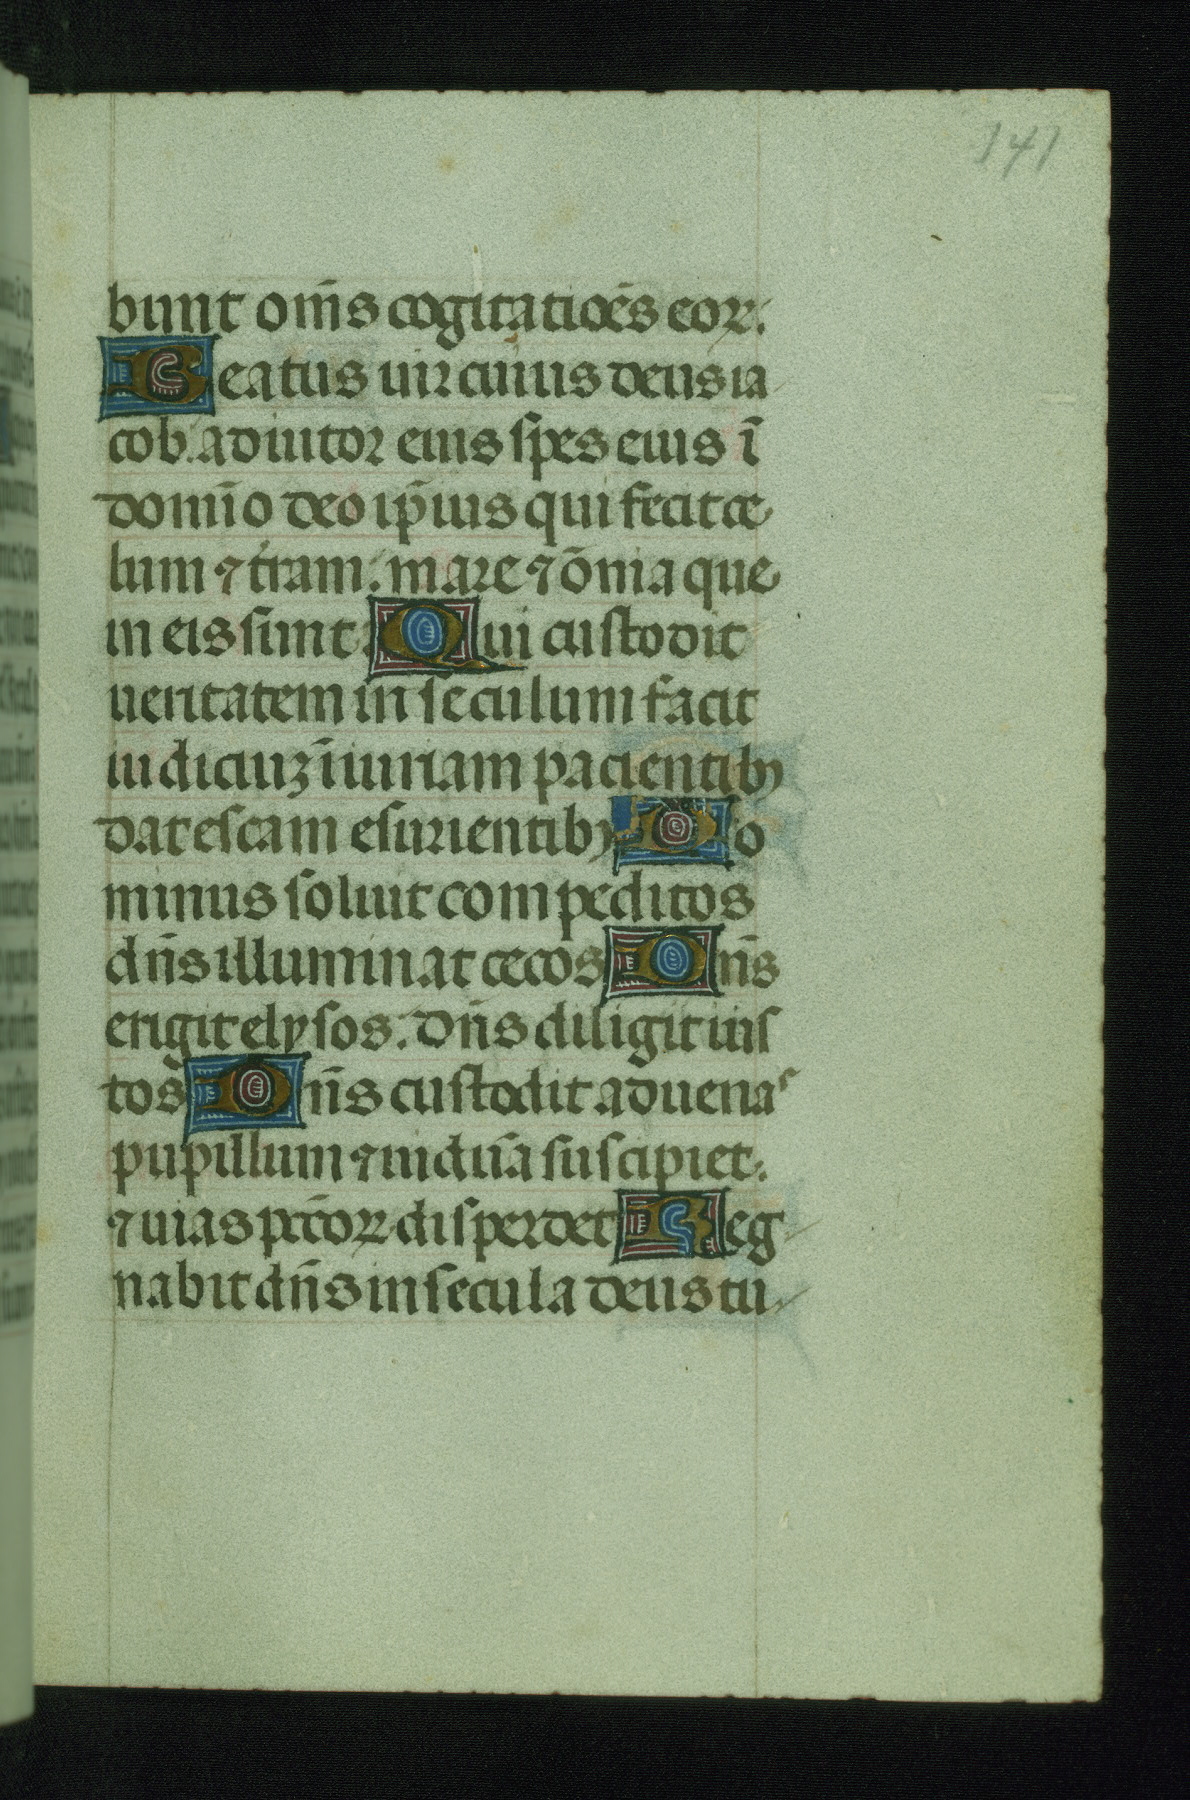 141
bunt om̄s cogitatiōēs eoꝝ.
Beatus uir cuius deus ia
cob. adiutor eius spes eius ī
domīo deo ip̄ius qui fecit ce
lum ⁊ t̄ram. mare ⁊ om̄ia que
in eis sunt. Qui custodit
ueritatem in seculum facit
iudiciuꝫ īiuriam pacientibꝰ
dat escam esurientibꝰ Do
minus soluit compeditos
dn̄s illuminat cecos Dn̄s
erigit elysos. Dn̄s diligit ius
tos Dn̄s custodit aduenas
pupillum ⁊ uiduā suscipiet.
⁊ uias pctōꝝ disperdet Reg
nabit dn̄s in secula deus tu